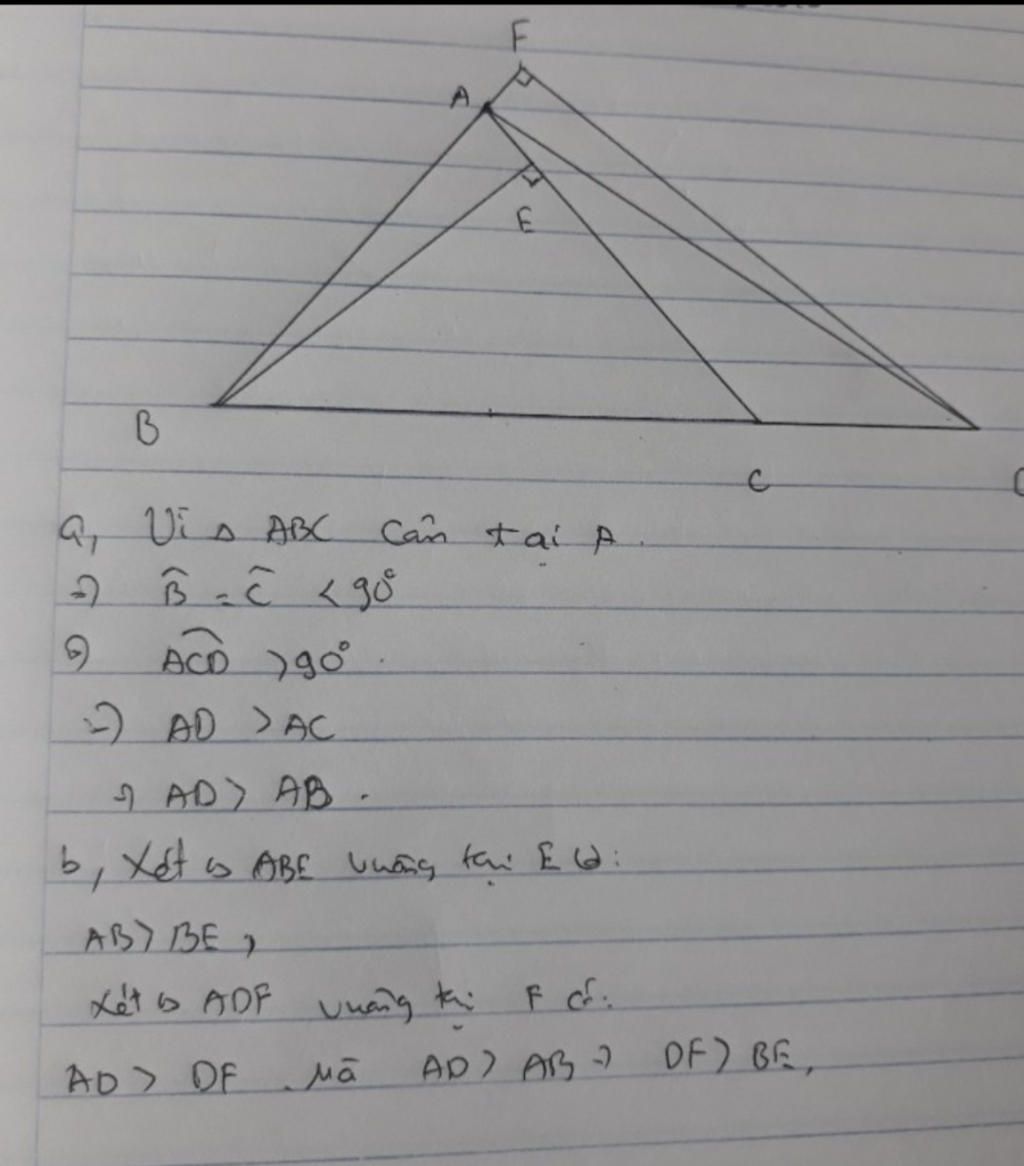 F
A
E
B
C
a, Vì Δ ABC cân tại A.
=> B̂ = Ĉ < 90°
=> ACD̂ > 90°.
=> AD > AC
=> AD > AB.
b, Xét Δ ABE vuông tại E có:
AB > BE,
Xét Δ ADF vuông tại F có:
AD > DF. Mà AD > AB => DF > BE.